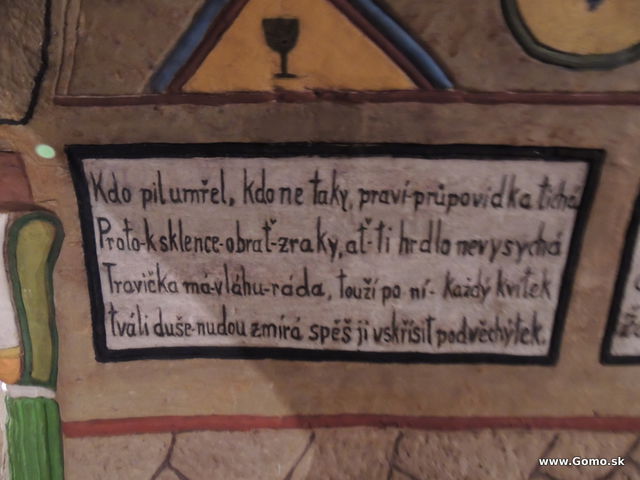 Kdo pil umřel, kdo ne taky, praví-průpovidka tichá
Proto-k sklence-obrať-zraky, ať-ti hrdlo nevysychá
Travička má-vláhu-ráda, touží po ní- každý kvítek
tvá-li duše-nudou zmírá spěš ji vskřísit podvěchýtek.
www.Gomo.sk